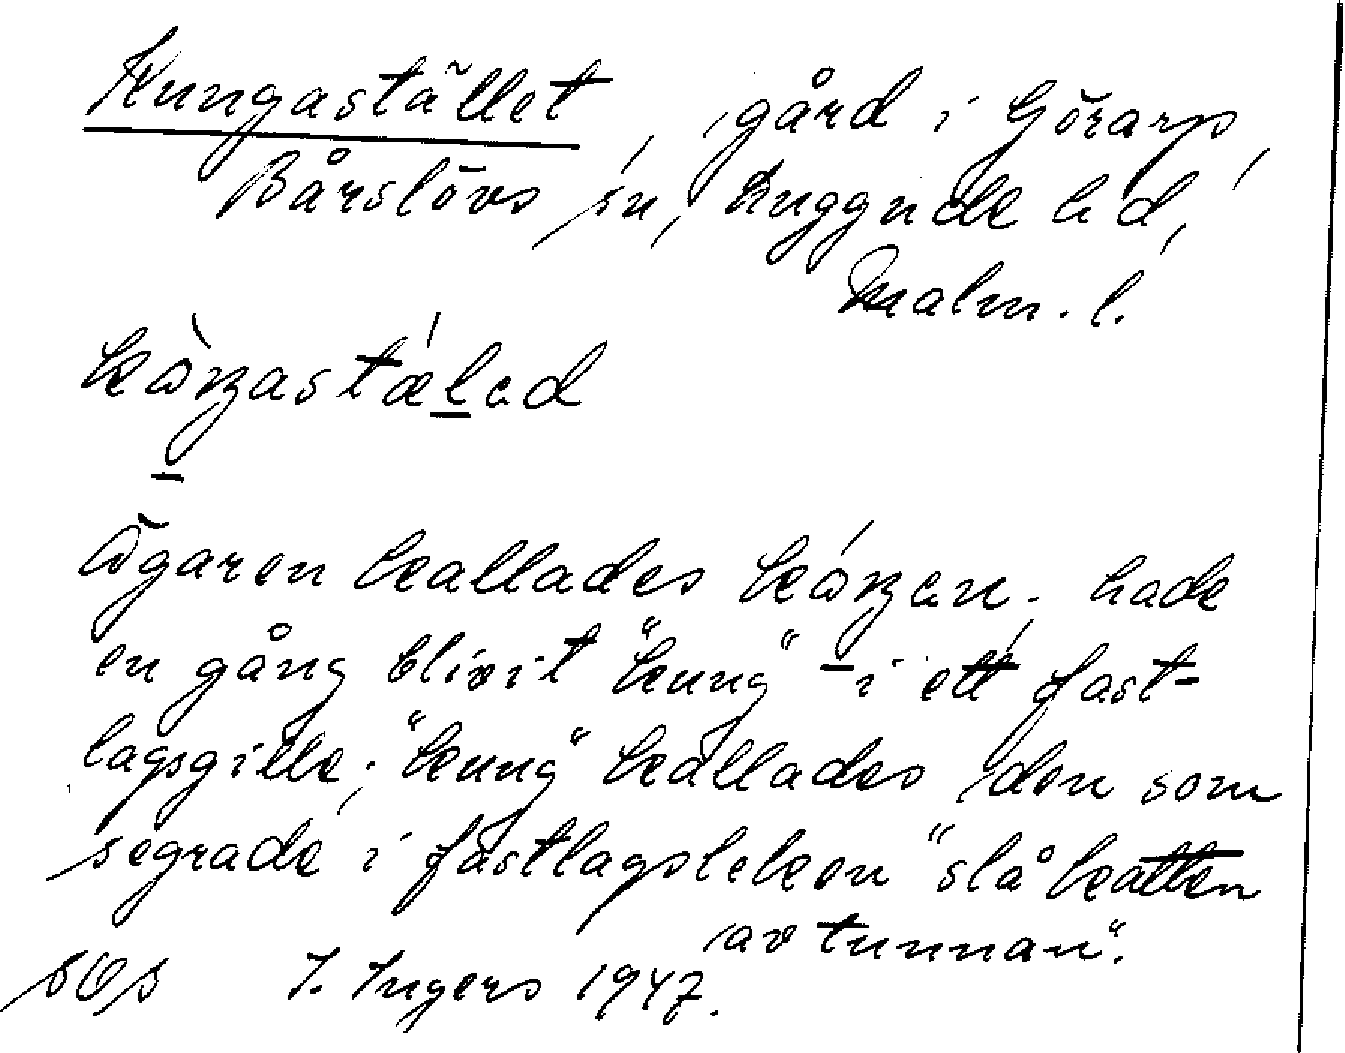 Kungastället, gård i Görarp,
Bårslövs sn, Luggude hd,
Malm. l.
Ägaren kallades hade
en gång blivit "kung" - i ett fast-
lagsgille; "kung" kallades den som
segrade i fastlagsleken "slå katten
av tunnan".
I. Ingers 1947.